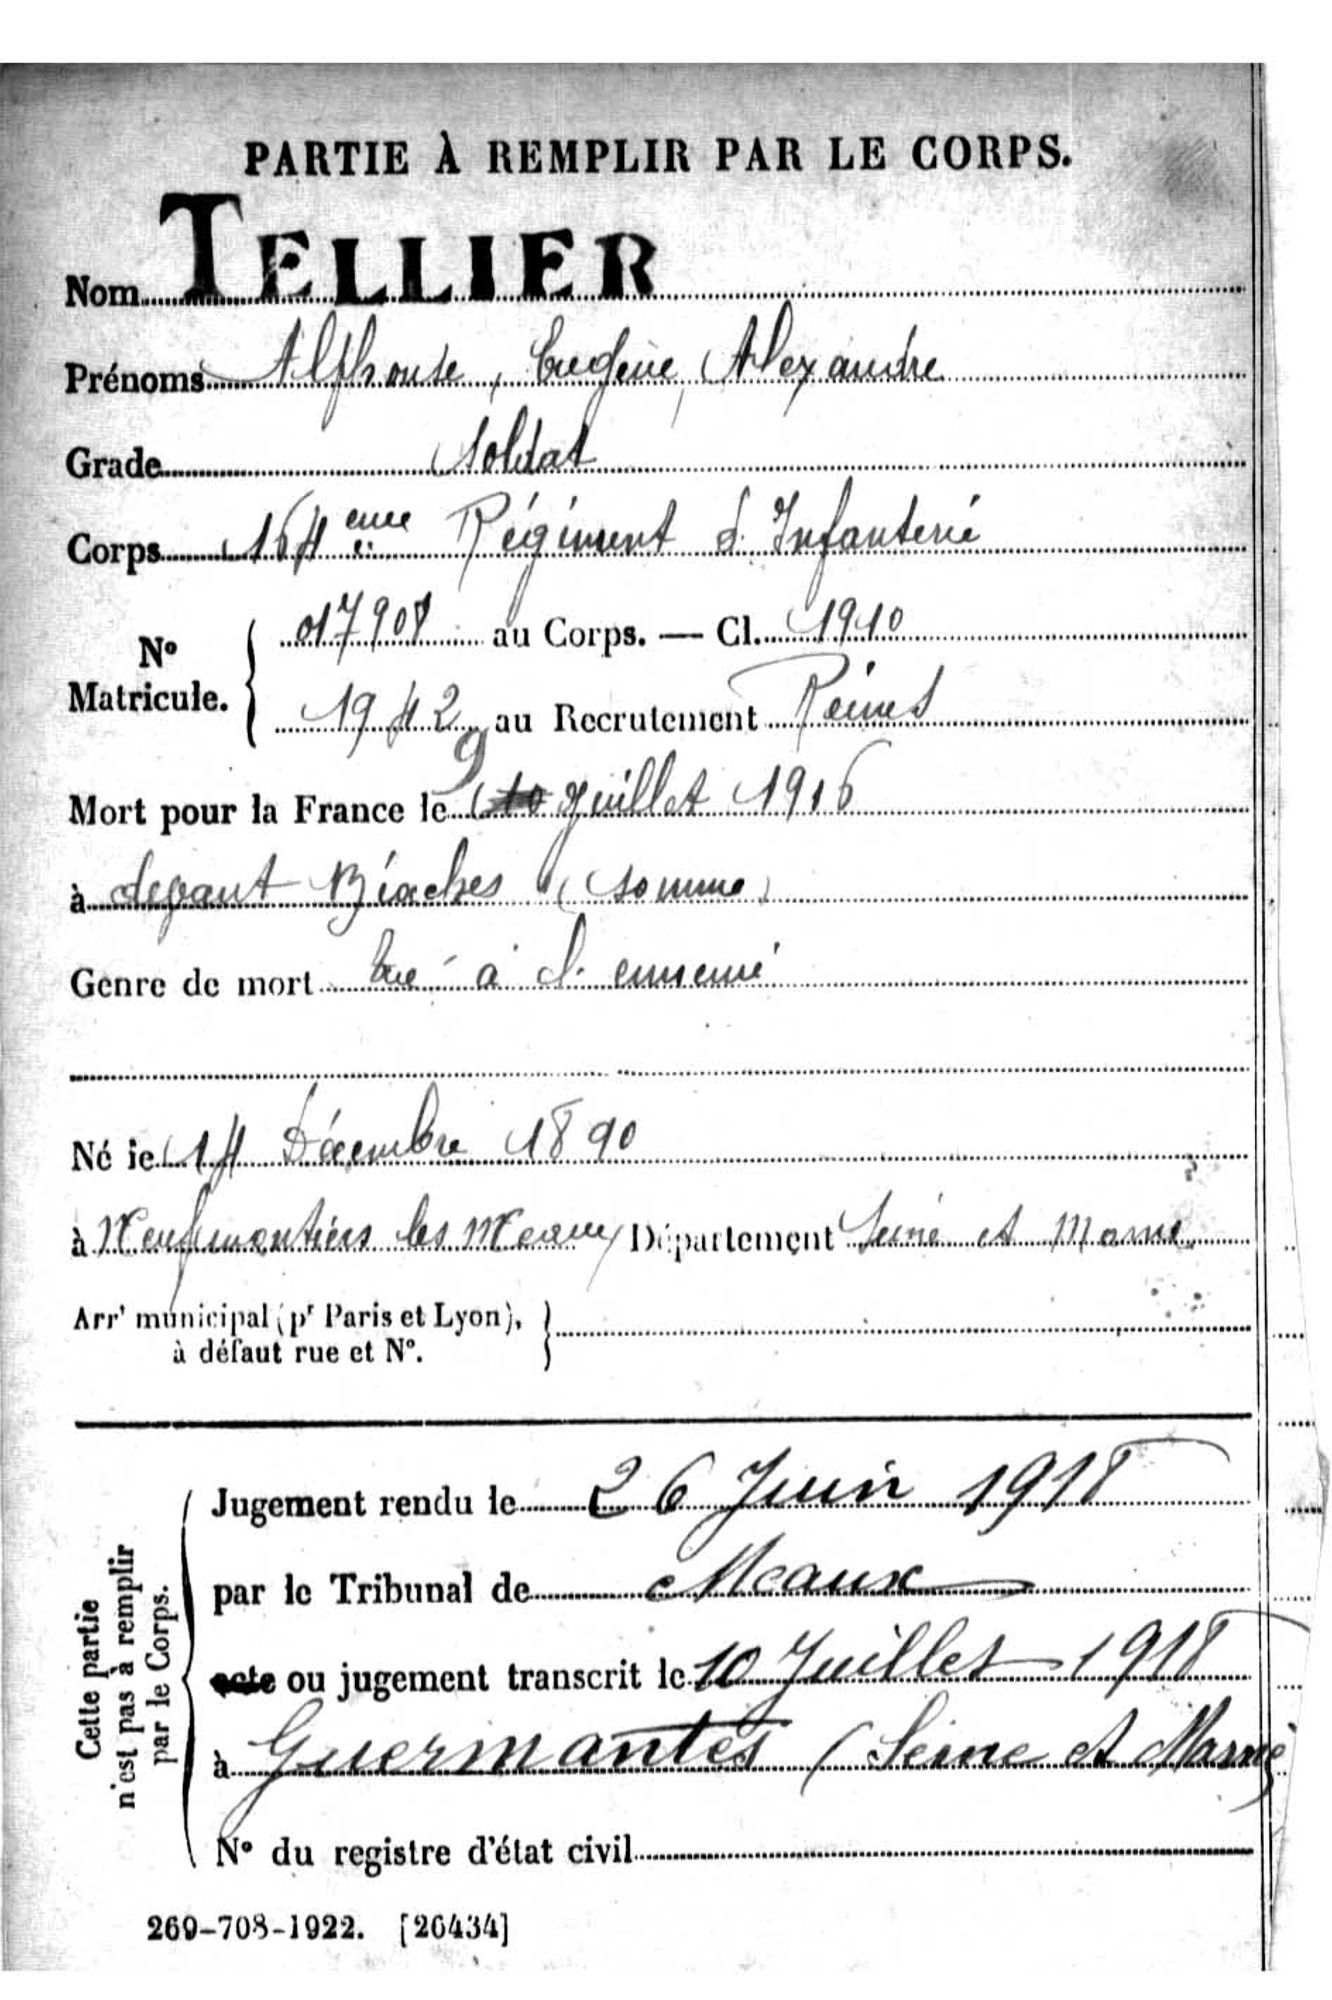 PARTIE À REMPLIR PAR LE CORPS.
Nom TELLIER
Prénoms Alphonse, Eugène, Alexandre
Grade Soldat
Corps 164eme Régiment d'Infanterie
No Matricule. { 017908 au Corps. — Cl. 1910
1942 au Recrutement Reims
Mort pour la France le 9 10 Juillet 1916
à devant Biaches (Somme)
Genre de mort tué à l'ennemi
Né le 14 Décembre 1890
à Neufmontiers les Meaux Département Seine et Marne
Arrt municipal (pr Paris et Lyon), }
à défaut rue et No.
Cette partie
n'est pas à remplir
par le Corps.
Jugement rendu le 26 Juin 1918
par le Tribunal de Meaux
acte ou jugement transcrit le 10 Juillet 1918
à Guermantes (Seine et Marne)
No du registre d'état civil
269-708-1922. [26434]